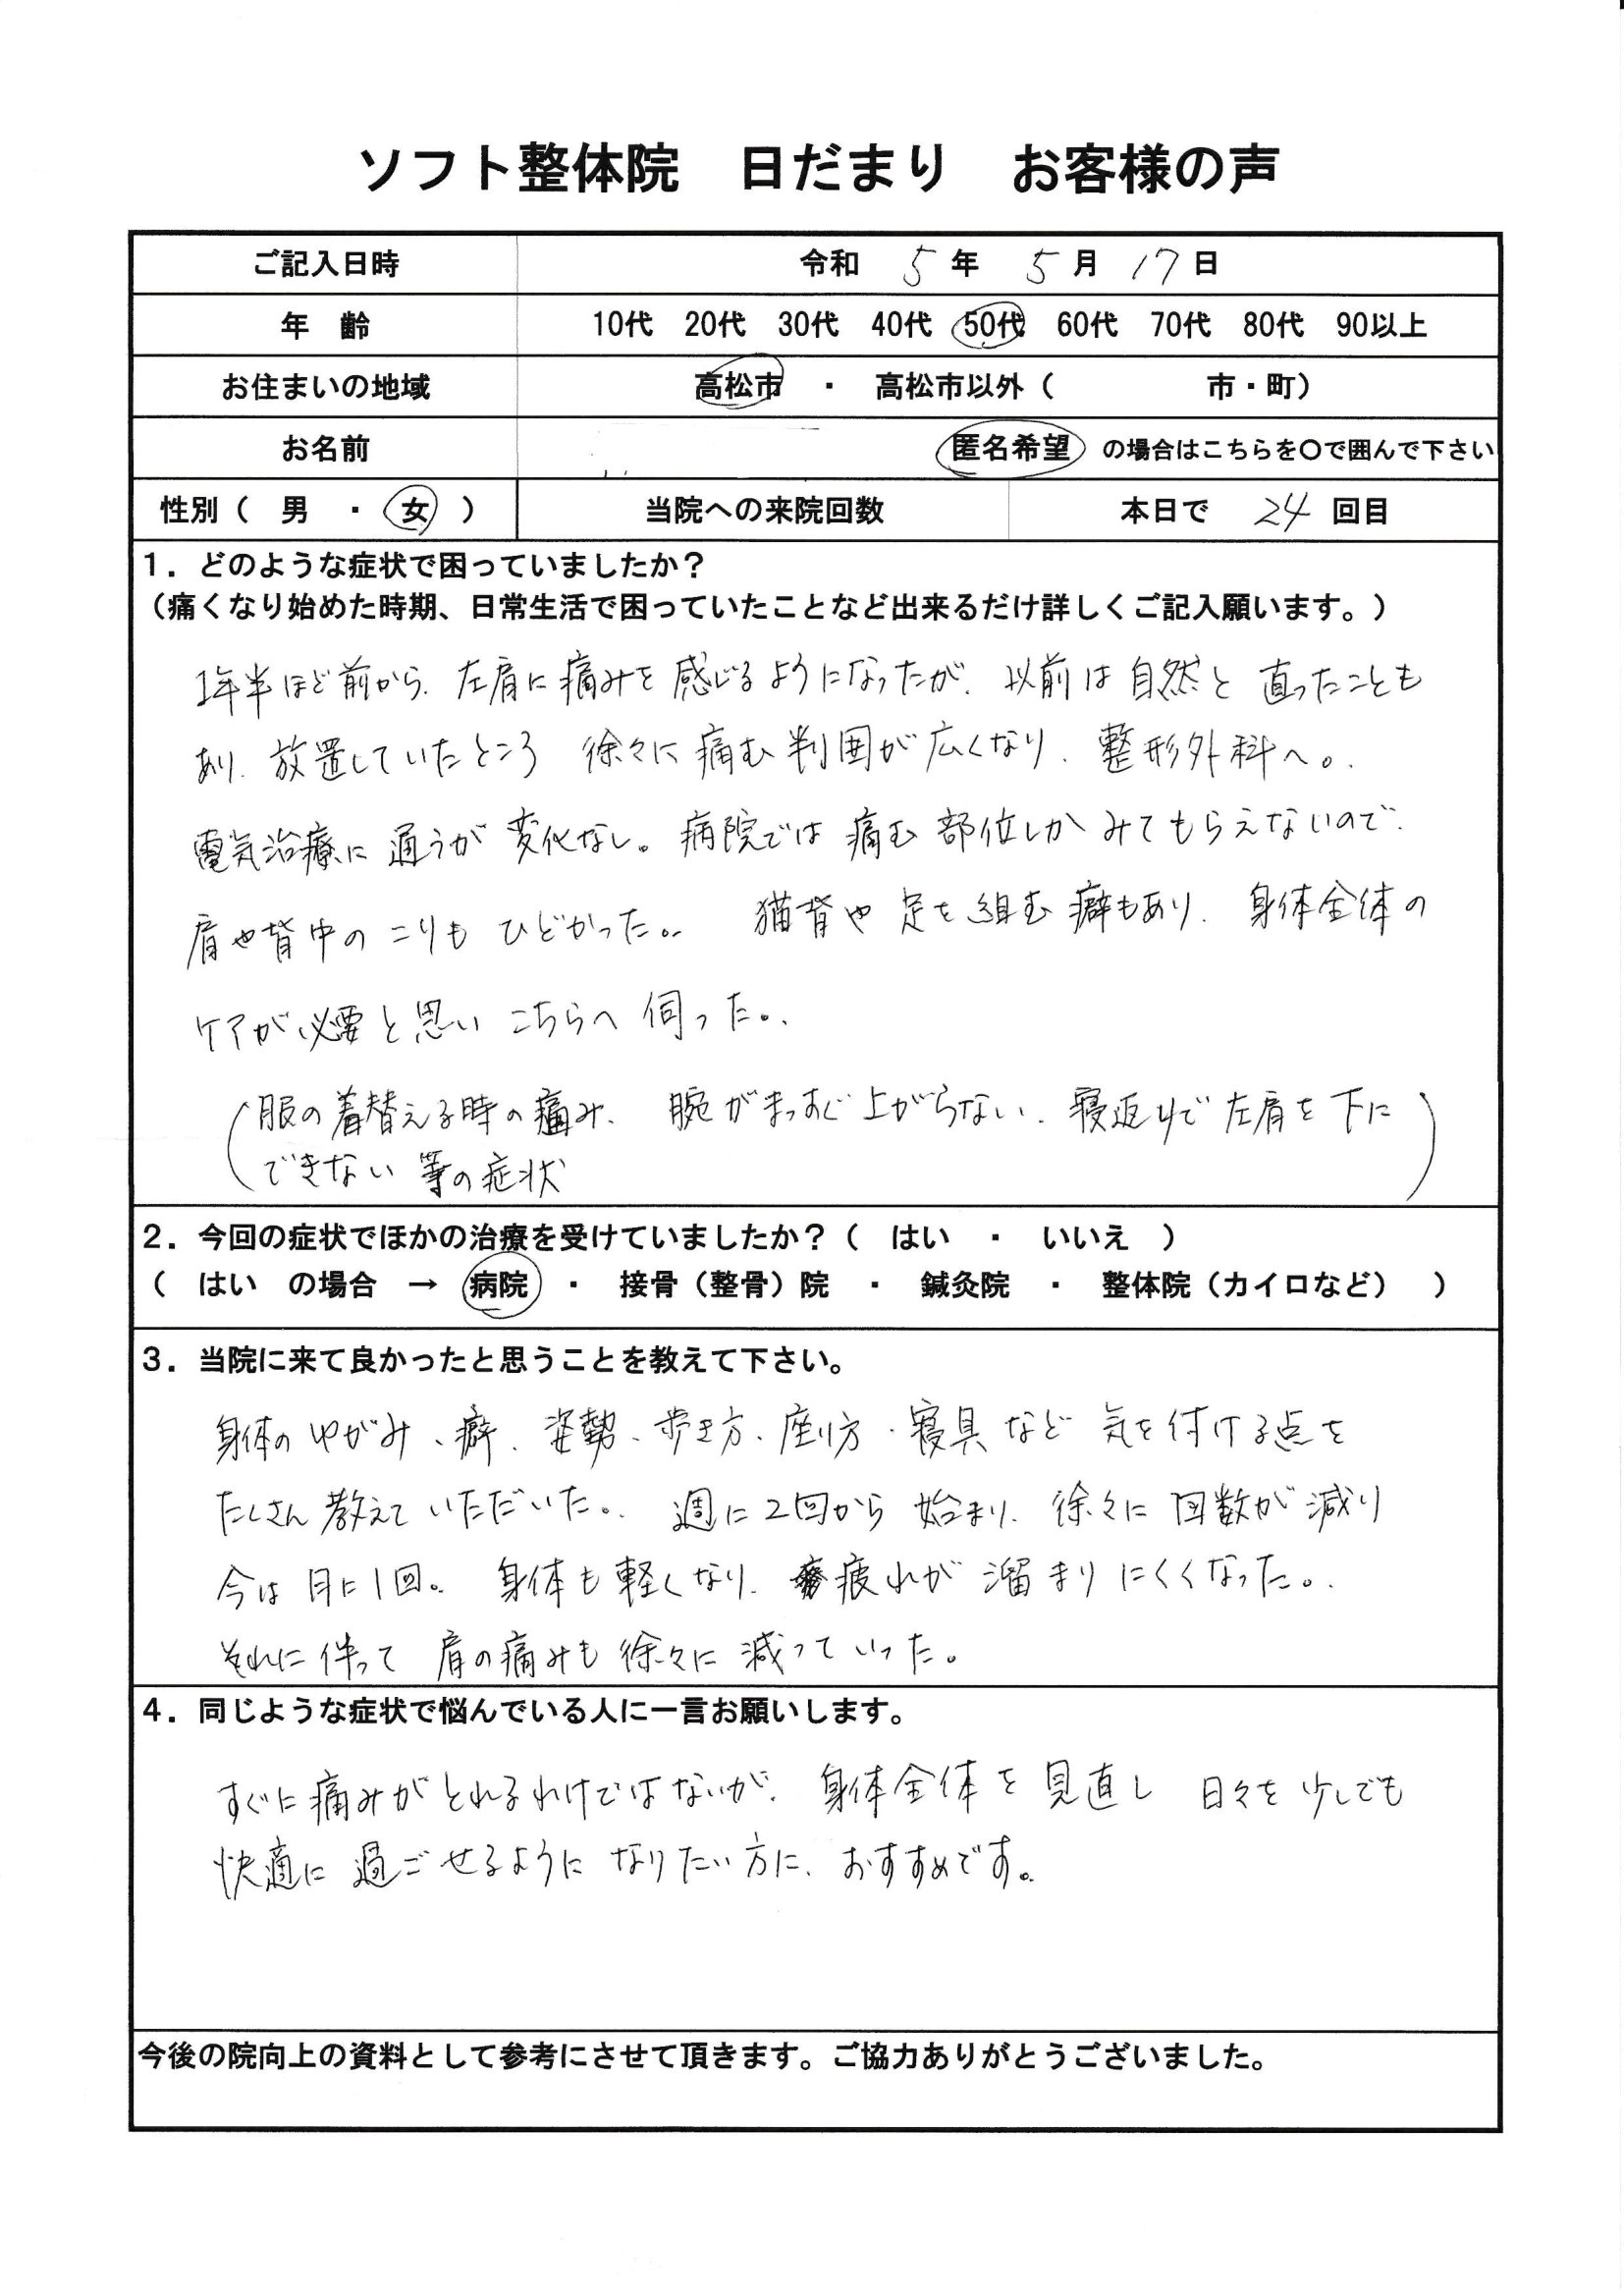 ソフト整体院　日だまり　お客様の声
ご記入日時　令和　5　年　5　月　17　日
年　齢　10代　20代　30代　40代　50代　60代　70代　80代　90以上
お住まいの地域　高松市　・　高松市以外（　　　　　市・町）
お名前　匿名希望　の場合はこちらを〇で囲んで下さい
性別（　男　・　女　）　当院への来院回数　本日で　24　回目
１．どのような症状で困っていましたか？
（痛くなり始めた時期、日常生活で困っていたことなど出来るだけ詳しくご記入願います。）
1年半ほど前から、左肩に痛みを感じるようになったが、以前は自然と直ったことも
あり、放置していたところ　徐々に痛む判囲が広くなり、整形外科へ。
電気治療に通うが変化なし。病院では痛む部位しかみてもらえないので、
肩や背中のこりもひどかった。　猫背や足を組む癖もあり、身体全体の
ケアが必要と思いこちらへ伺った。
（服の着替える時の痛み、腕がまっすぐ上がらない、寝返りで左肩を下に
できない等の症状）
２．今回の症状でほかの治療を受けていましたか？（　はい　・　いいえ　）
（　はい　の場合　→　病院　・　接骨（整骨）院　・　鍼灸院　・　整体院（カイロなど）　）
３．当院に来て良かったと思うことを教えて下さい。
身体のゆがみ、癖、姿勢、歩き方、座り方、寝具など　気を付ける点を
たくさん教えていただいた。週に2回から始まり、徐々に回数が減り
今は月に1回。　身体も軽くなり、疲れが溜まりにくくなった。
それに伴って　肩の痛みも徐々に減っていった。
４．同じような症状で悩んでいる人に一言お願いします。
すぐに痛みがとれるわけではないが、身体全体を見直し　日々を少しでも
快適に過ごせるようになりたい方に、おすすめです。
今後の院向上の資料として参考にさせて頂きます。ご協力ありがとうございました。